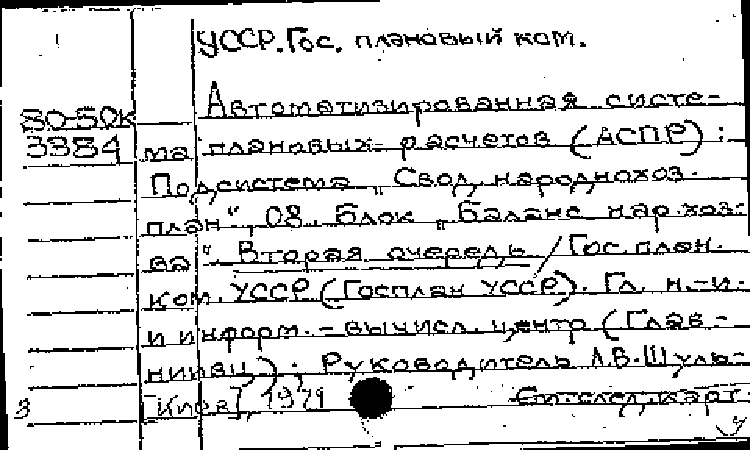 УССР. Гос. плановый ком.
Автоматизированная систе-
80-50к
3384
ма плановых расчетов (АСПР) :
Подсистема „Свод. народнохоз.
план", 08. Блок „Баланс нар. хоз-
ва". Вторая очередь / Гос. план.
ком. УССР (Госплан УССР). Гл. н.-и.
и информ.-вычисл. центр (Глав-
нивц) ; Руководитель А.В. Шуль-
3 [Киев], 1979 См. след. карт.